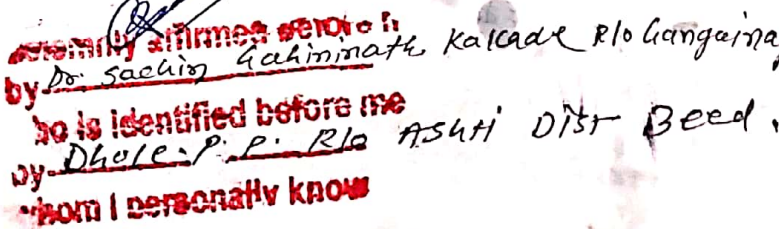 solemnly affirmed before m
by Dr. Sachin Gahininath Kakade R/o Gangaina
ho is identified before me
by Dhole. P. P. R/o Ashti Dist Beed.
whom I personally know